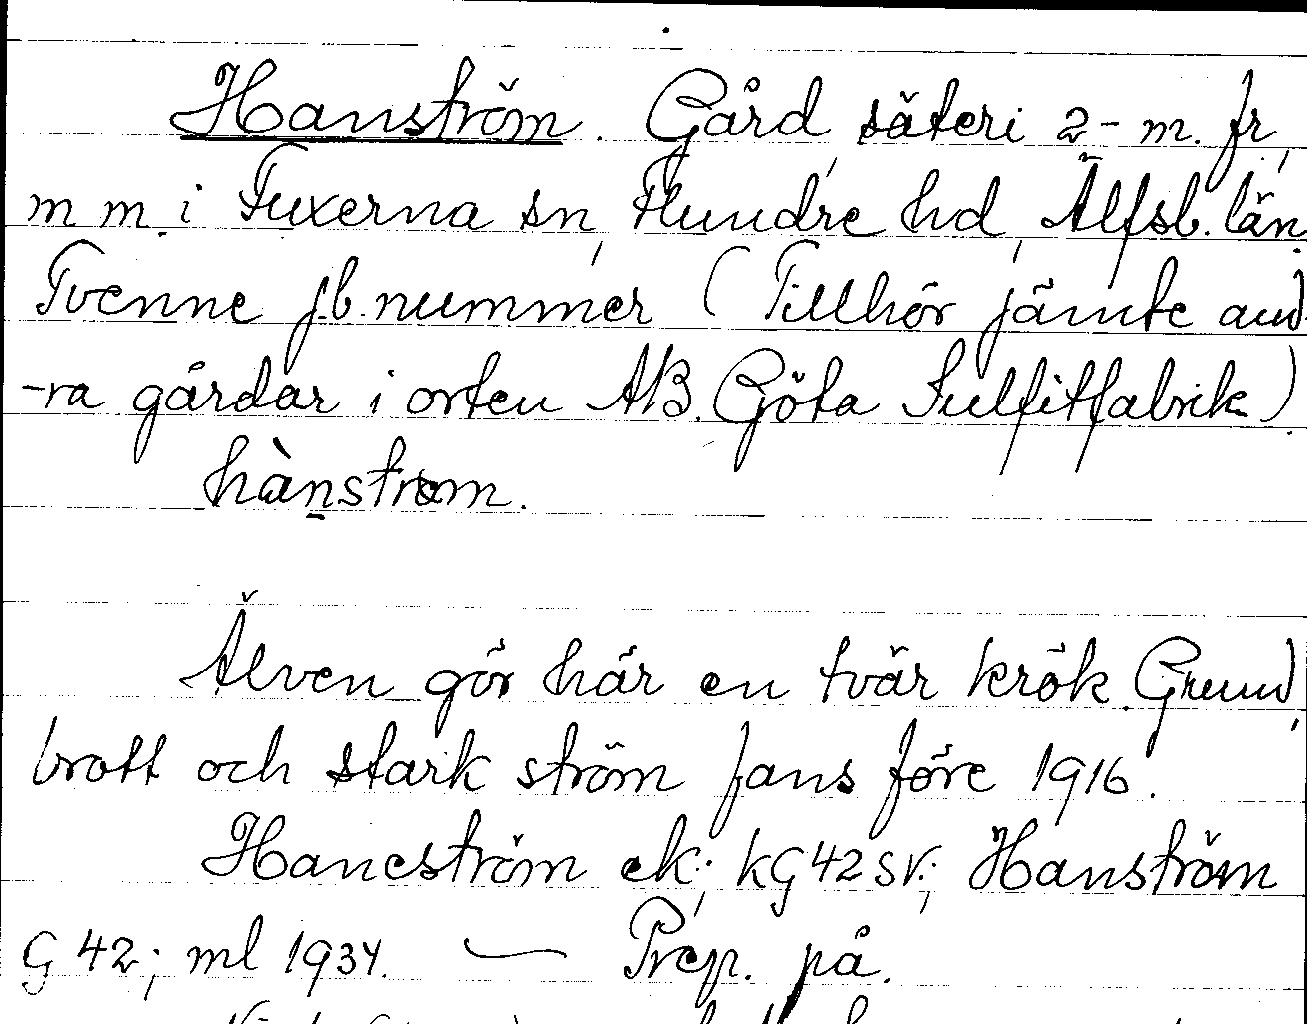 Hanström. Gård, säteri 2-m. fr,
m m. i Fuxerna sn, Flundre hd, Älfsb. län.
Tvenne jb. nummer (Tillhör jämte and-
-ra gårdar i orten AB. Göta Sulfitfabrik).
hànstrom.
Älven gör här en tvär krök. Grund,
brott och stark ström fans före 1916.
Haneström ek.; kG42SV.; Hanström
G 42; ml 1934. — Prep. på.